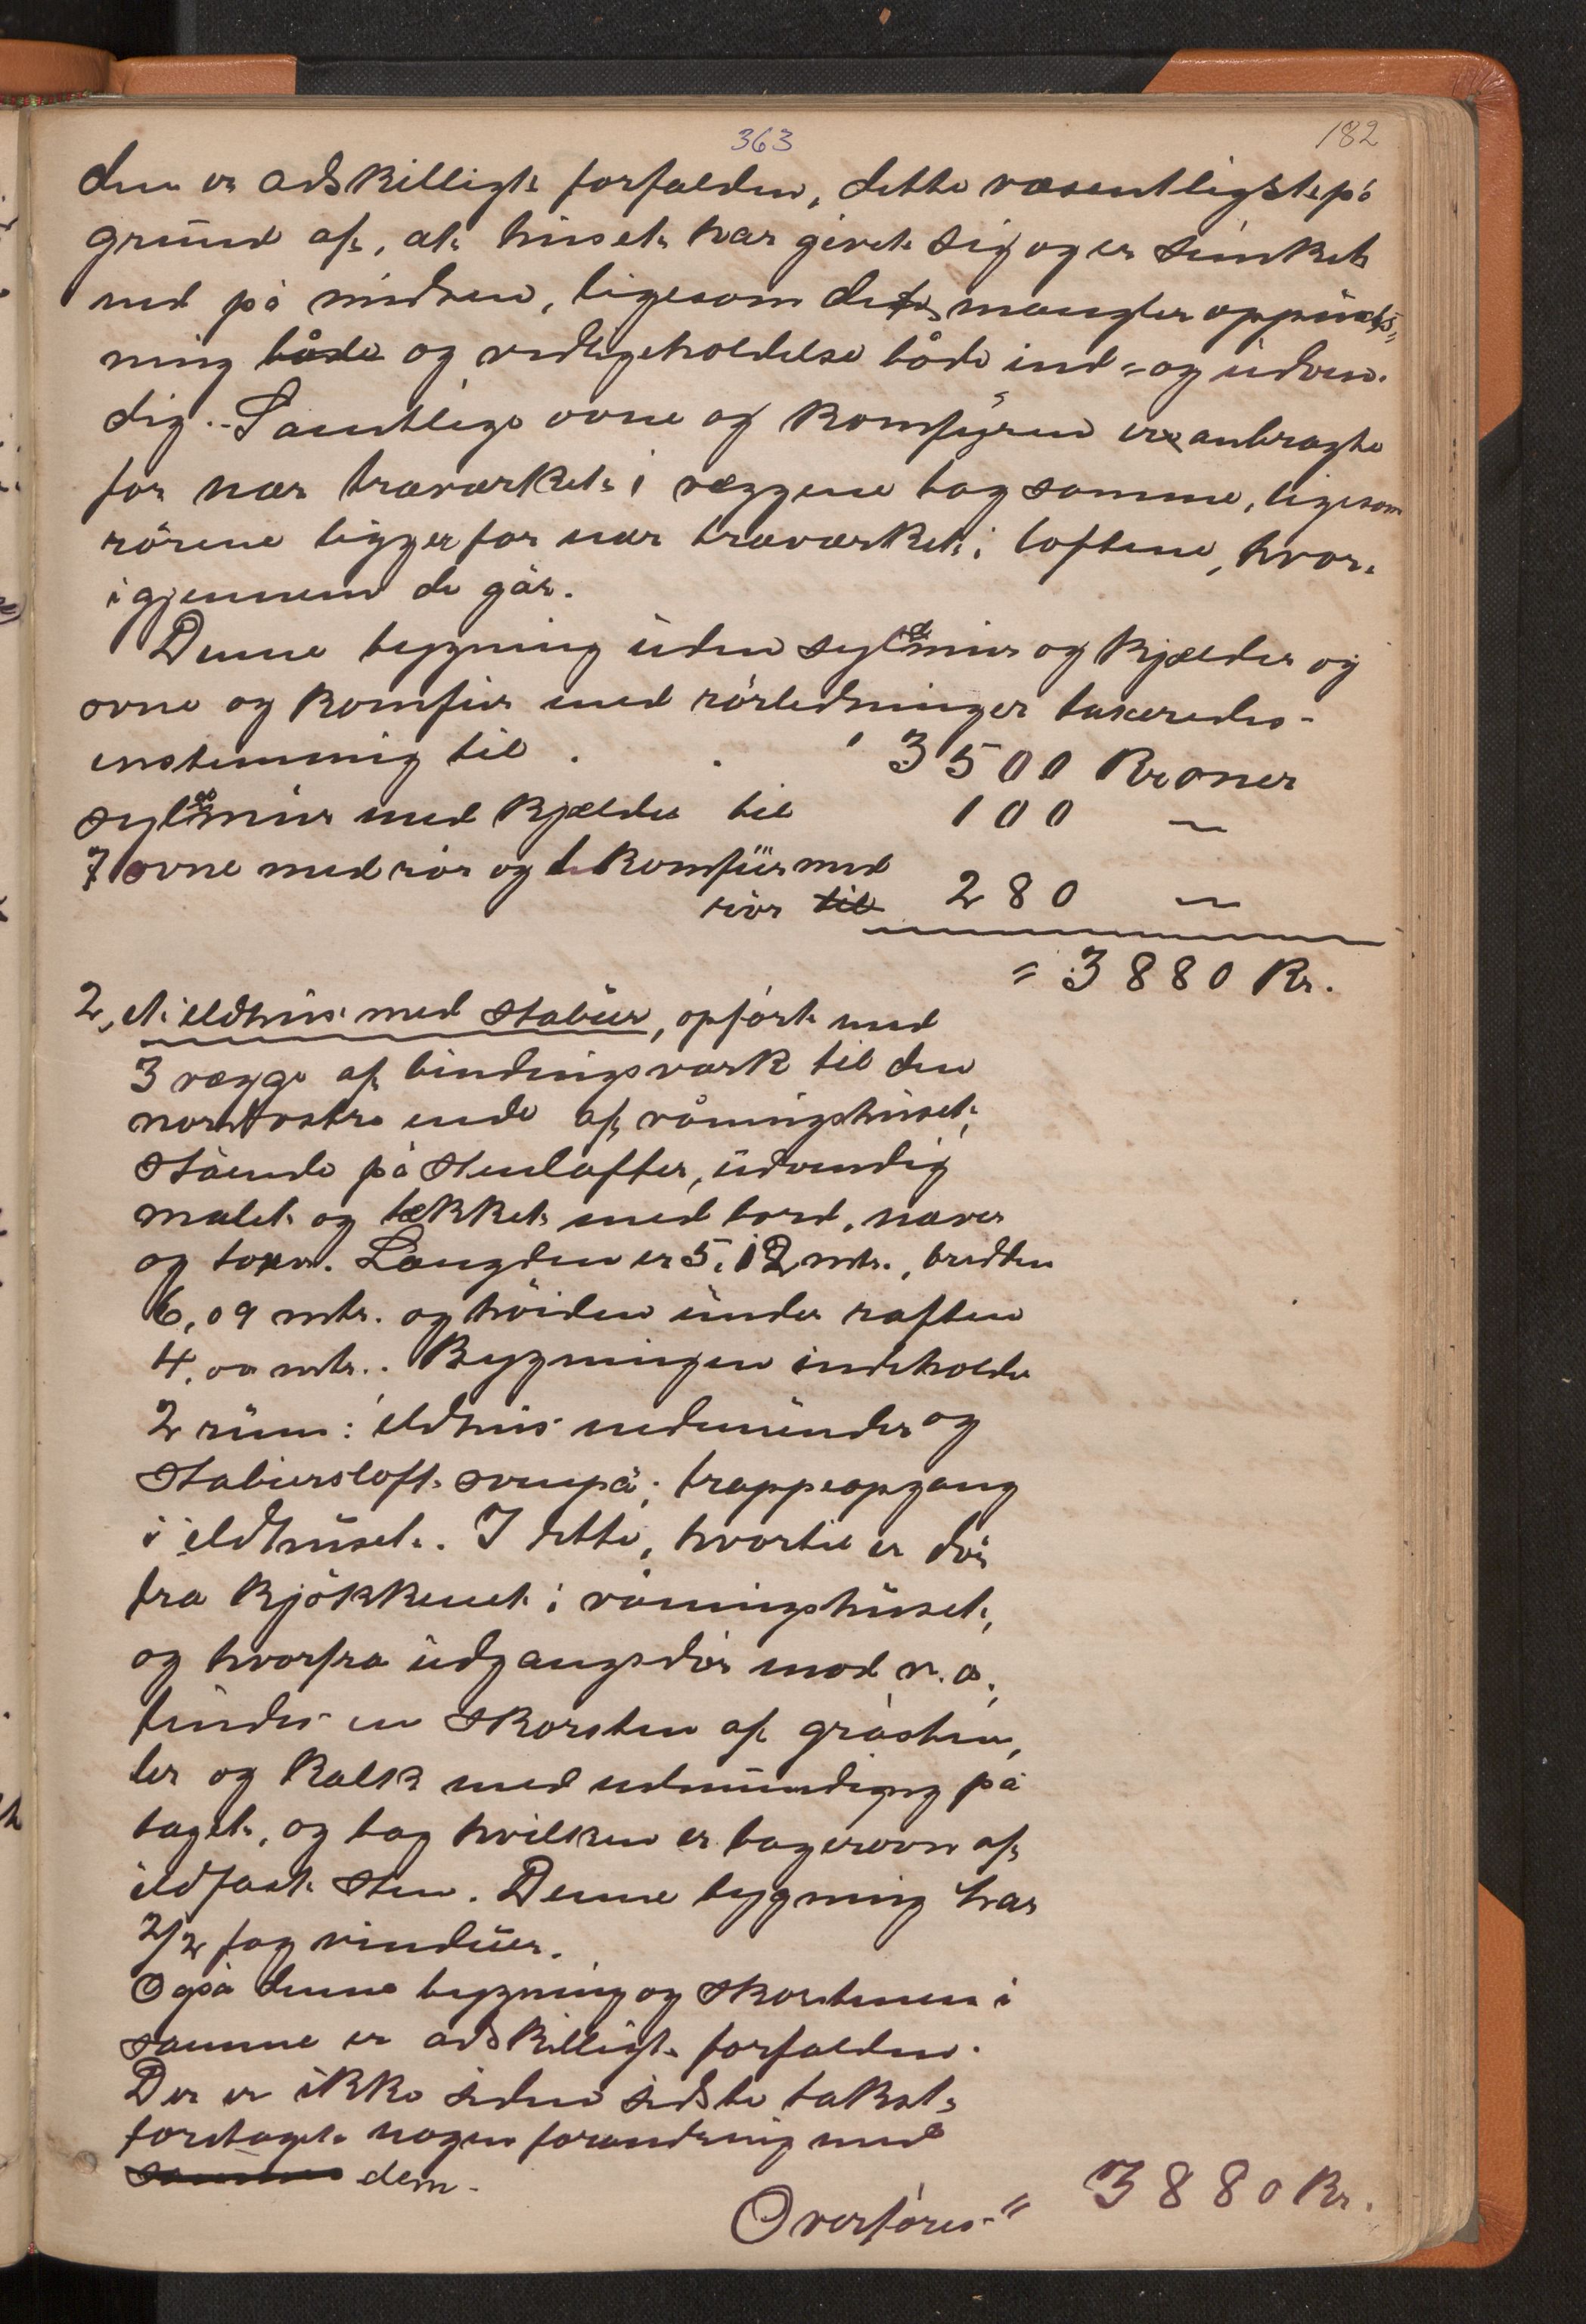 363
182
den er adskilligt forfalden, dette væsentligst på
grund af, at huset har givet sig og er sunket
ned på midten, ligesom det mangler oppuds=
ning både og vedligeholdelse både ind= og udven=
dig. - Samtlige ovne og komfyren er anbragte
for nær træværket i væggene bag samme, ligesom
rörene ligger for nær træværket i loftene, hvor=
igjennem de går.
Denne bygning uden syldmur og kjælder og
ovne og komfur med rörledninger taxeredes
enstemmig til . . 3500 Kroner
syldmur med kjælder til 100 —
7 ovne med rör og 1 komfür med
rör til 280 —
= 3880 Kr.
2, et ildhus med stabur, opfört med
3 vægge af bindingsværk til den
nordöstre ende af våningshuset,
stående på stenlafter, udvendig
malet og tækket med bord, næver
og torv. Længden er 5,12 mtr., bredden
6,09 mtr. og höiden under raften
4,00 mtr.. Bygningen indeholder
2 rum: ildhus nedenunder og
stabursloft ovenpå; trappeopgang
i ildhuset. I dette, hvortil er dör
fra kjökkenet i våningshuset,
og hvorfra udgangsdör mod n.o.,
findes en skorsten af gråsten,
ler og kalk med udmunding på
taget, og bag hvilken er bagerovn af
ildfast sten. Denne bygning har
2/2 fag vinduer.
Også denne bygning og skorstenen i
samme er adskilligt forfalden.
Der er ikke siden sidste takst
foretaget nogen forandring med
samme dem.
Overföres = 3880 Kr.